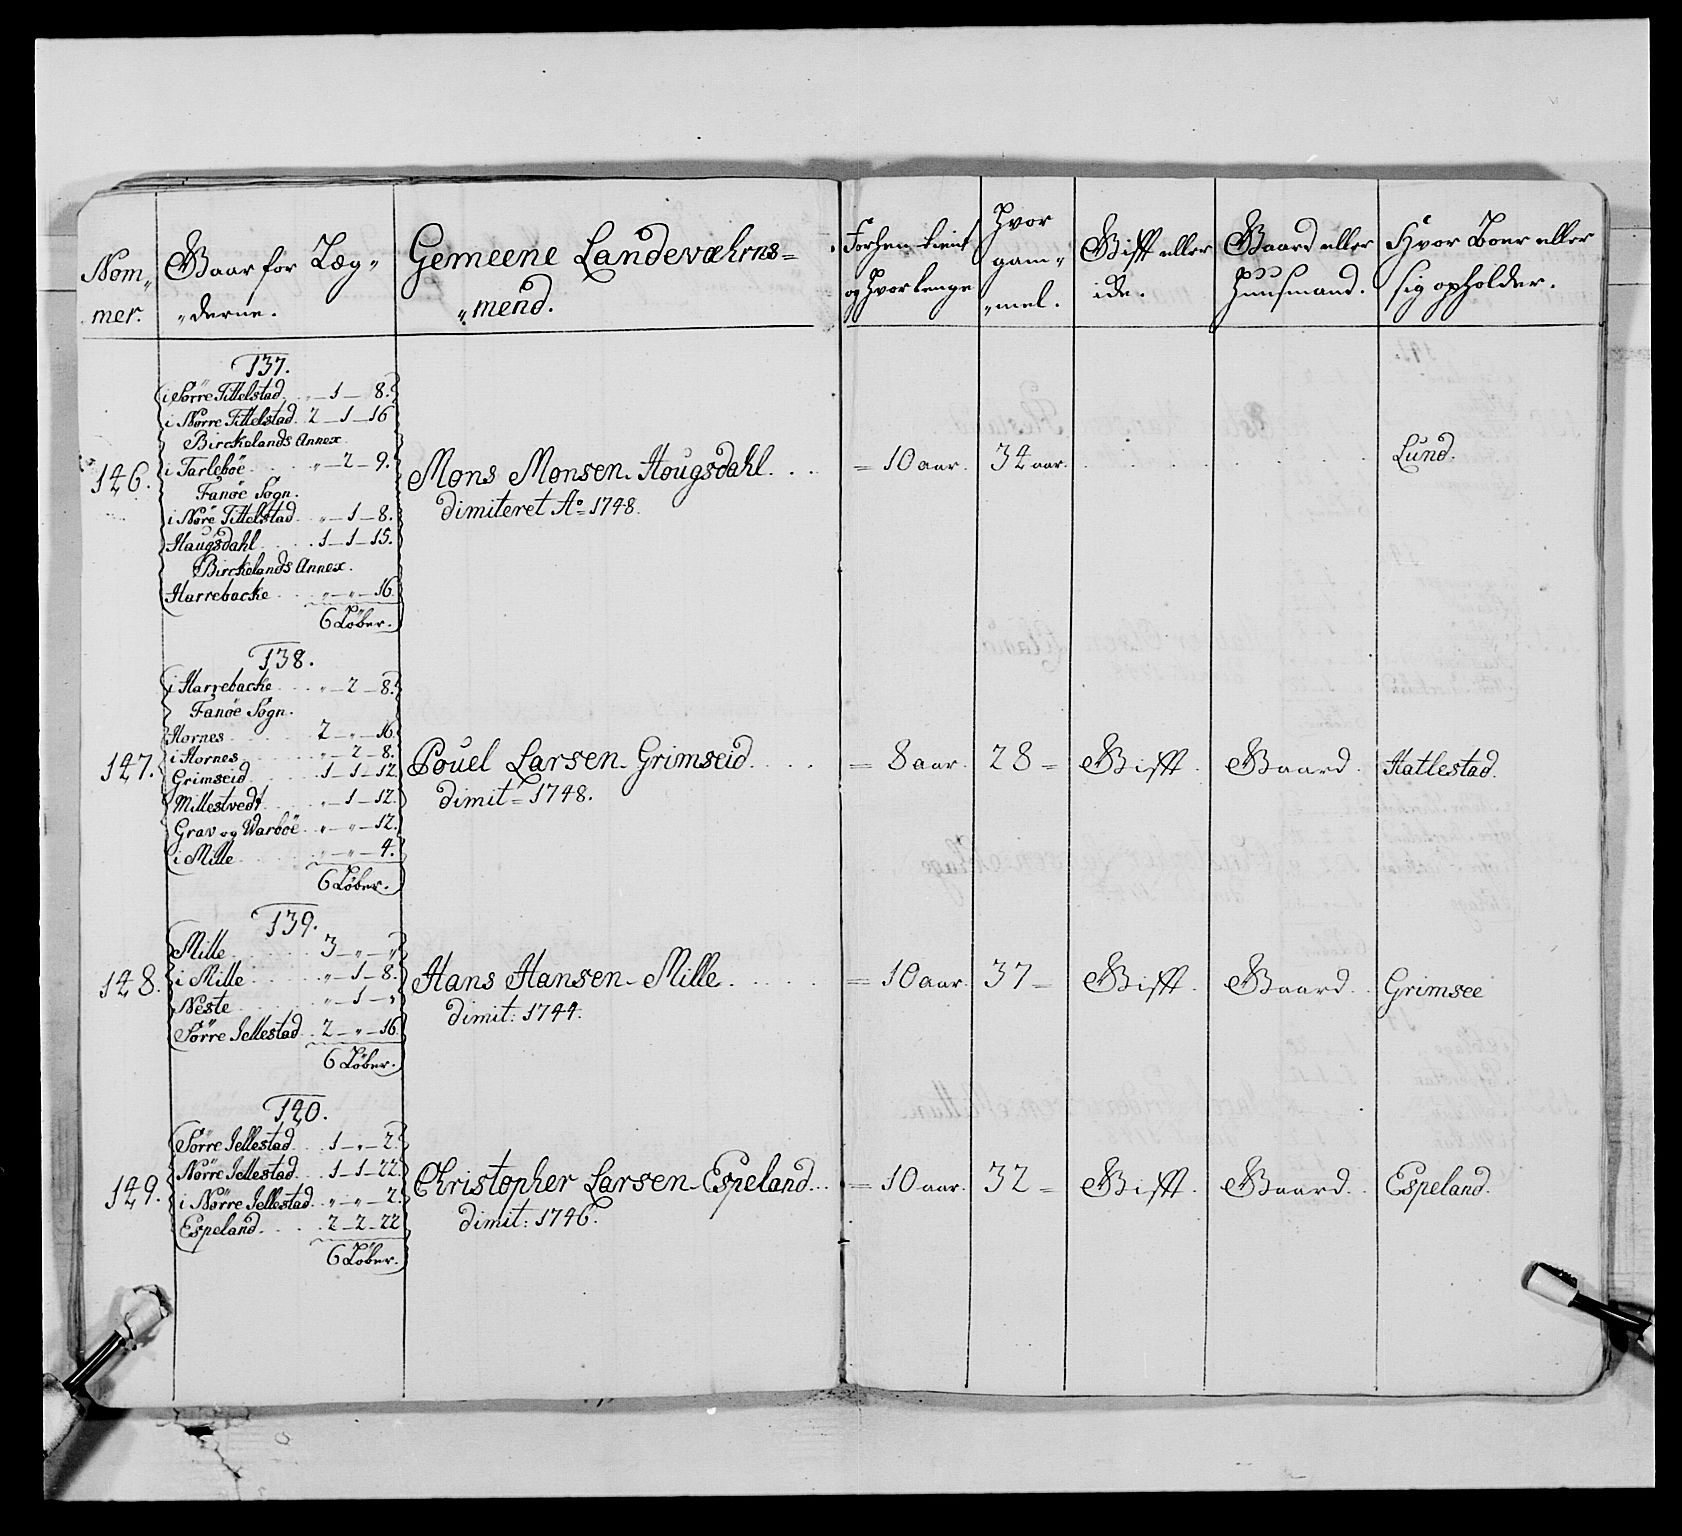 Nom„
mer.
Gaar for Læg„
„derne.
Gemeene Landeværns=
„mend.
Forhen tient
og hvor lenge
Hvor
gam„
„mel.
Gift eller
ide.
Gaard eller
Huusmand.
Hvor Boer eller
sig opholder.
137.
i Sørre Tittelstad „ – 1 – 8.
i Nørre Tittelstad 2 – 1 – 16
Birckelands Annex.
i Tarleböe „ – 2 – 9.
Fanöe Sogn.
i Nöre Tittelstad „ – 1 – 8.
Haugsdahl 1 – 1 – 15.
Birckelands Annex.
Harrebacke „ – „ – 16.
6 Løber.
146. Mons Monsen Hougsdahl = 10 aar. 34 aar. Lund.
dimiteret Ao = 1748.
138.
i Harrebacke „ – 2 – 8.
Fanöe Sogn.
Hornes 2 – „ – 16.
i Hornes „ – 2 – 8.
Grimseid 1 – 1 – 12.
Millestvedt „ – 1 – 12.
Grav og Warböe „ – „ – 12.
i Mille „ – „ – 4.
6 Løber.
147. Pouel Larsen Grimseid = 8 aar. 28 = Gift. Gaard. Hatlestad.
dimit = 1748.
139.
Mille 3 – „ – „
i Mille „ – 1 – 8.
Neste „ – 1 – „
Sørre Jellestad 2 – „ – 16
6 Løber.
148. Hans Hansen Mille = 10 aar. 37 = Gift. Gaard. Grimsee
dimit: 1744.
140.
Sørre Jellestad 1 – „ – 2.
Nørre Jellestad 1 – 1 – 22.
i Nørre Jellestad „ – „ – 2.
Espeland 2 – 2 – 22
6 Løber.
149. Christopher Larsen Espeland = 10 aar. 32 = Gift. Gaard. Espeland.
dimit: 1746.